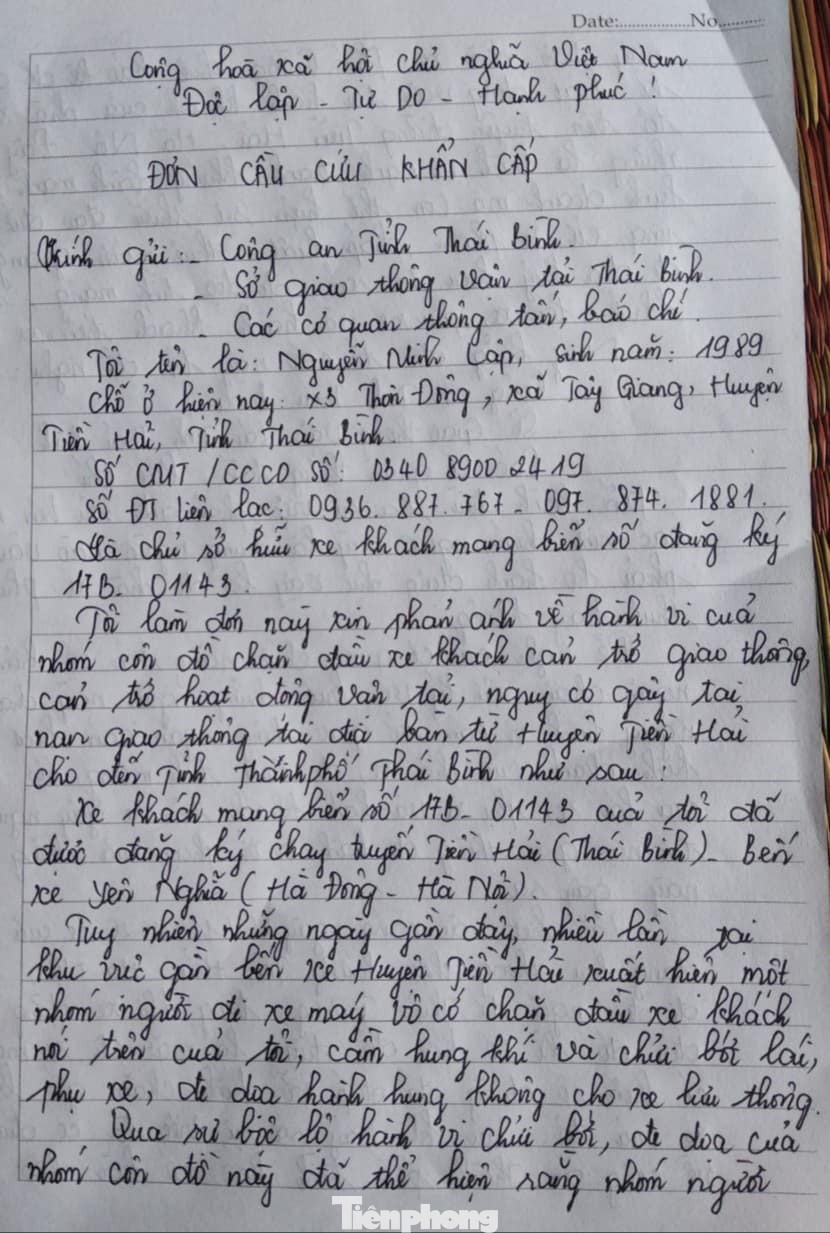 Date:..................No............
Cộng hoà xã hội chủ nghĩa Việt Nam
Độc lập - Tự Do - Hạnh phúc !
ĐƠN CẦU CỨU KHẨN CẤP
Kính gửi: - Công an Tỉnh Thái Bình.
- Sở giao thông vận tải Thái Bình.
- Các cơ quan thông tấn, báo chí.
Tôi tên là: Nguyễn Minh Cập, sinh năm: 1989
Chỗ ở hiện nay: X3 Thôn Đông, xã Tây Giang, Huyện
Tiền Hải, Tỉnh Thái Bình.
Số CMT / CCCD số: 0340 8900 2419
Số ĐT liên lạc: 0936. 887. 767 - 097. 874. 1881.
Là chủ sở hữu xe khách mang biển số đăng ký
17B - 01143.
Tôi làm đơn này xin phản ánh về hành vi của
nhóm côn đồ chặn đầu xe khách cản trở giao thông,
cản trở hoạt động vận tải, nguy cơ gây tai
nạn giao thông tại địa bàn từ Huyện Tiền Hải
cho đến Tỉnh Thành phố Thái Bình như sau:
Xe khách mang biển số 17B - 01143 của tôi đã
được đăng ký chạy tuyến Tiền Hải (Thái Bình) - Bến
xe Yên Nghĩa (Hà Đông - Hà Nội).
Tuy nhiên những ngày gần đây, nhiều lần tại
khu vực gần bến xe Huyện Tiền Hải xuất hiện một
nhóm người đi xe máy vô cớ chặn đầu xe khách
nói trên của tôi, cầm hung khí và chửi bới lái,
phụ xe, đe doạ hành hung không cho xe lưu thông.
Qua sự bộc lộ hành vi chửi bới, đe doạ của
nhóm côn đồ này đã thể hiện rằng nhóm người
Tiênphong